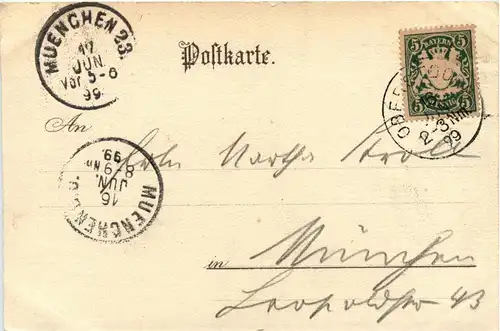 MUENCHEN 23.
17
JUN.
Vor 5-6
99
Postkarte.
BAYERN
5 5
PFENNIG
OBER
2-3 Nm
99
An
Frln Martha Kroll
MUENCHEN
16
JUN.
8-9 Nm
99.
in München
Leopoldstr 43